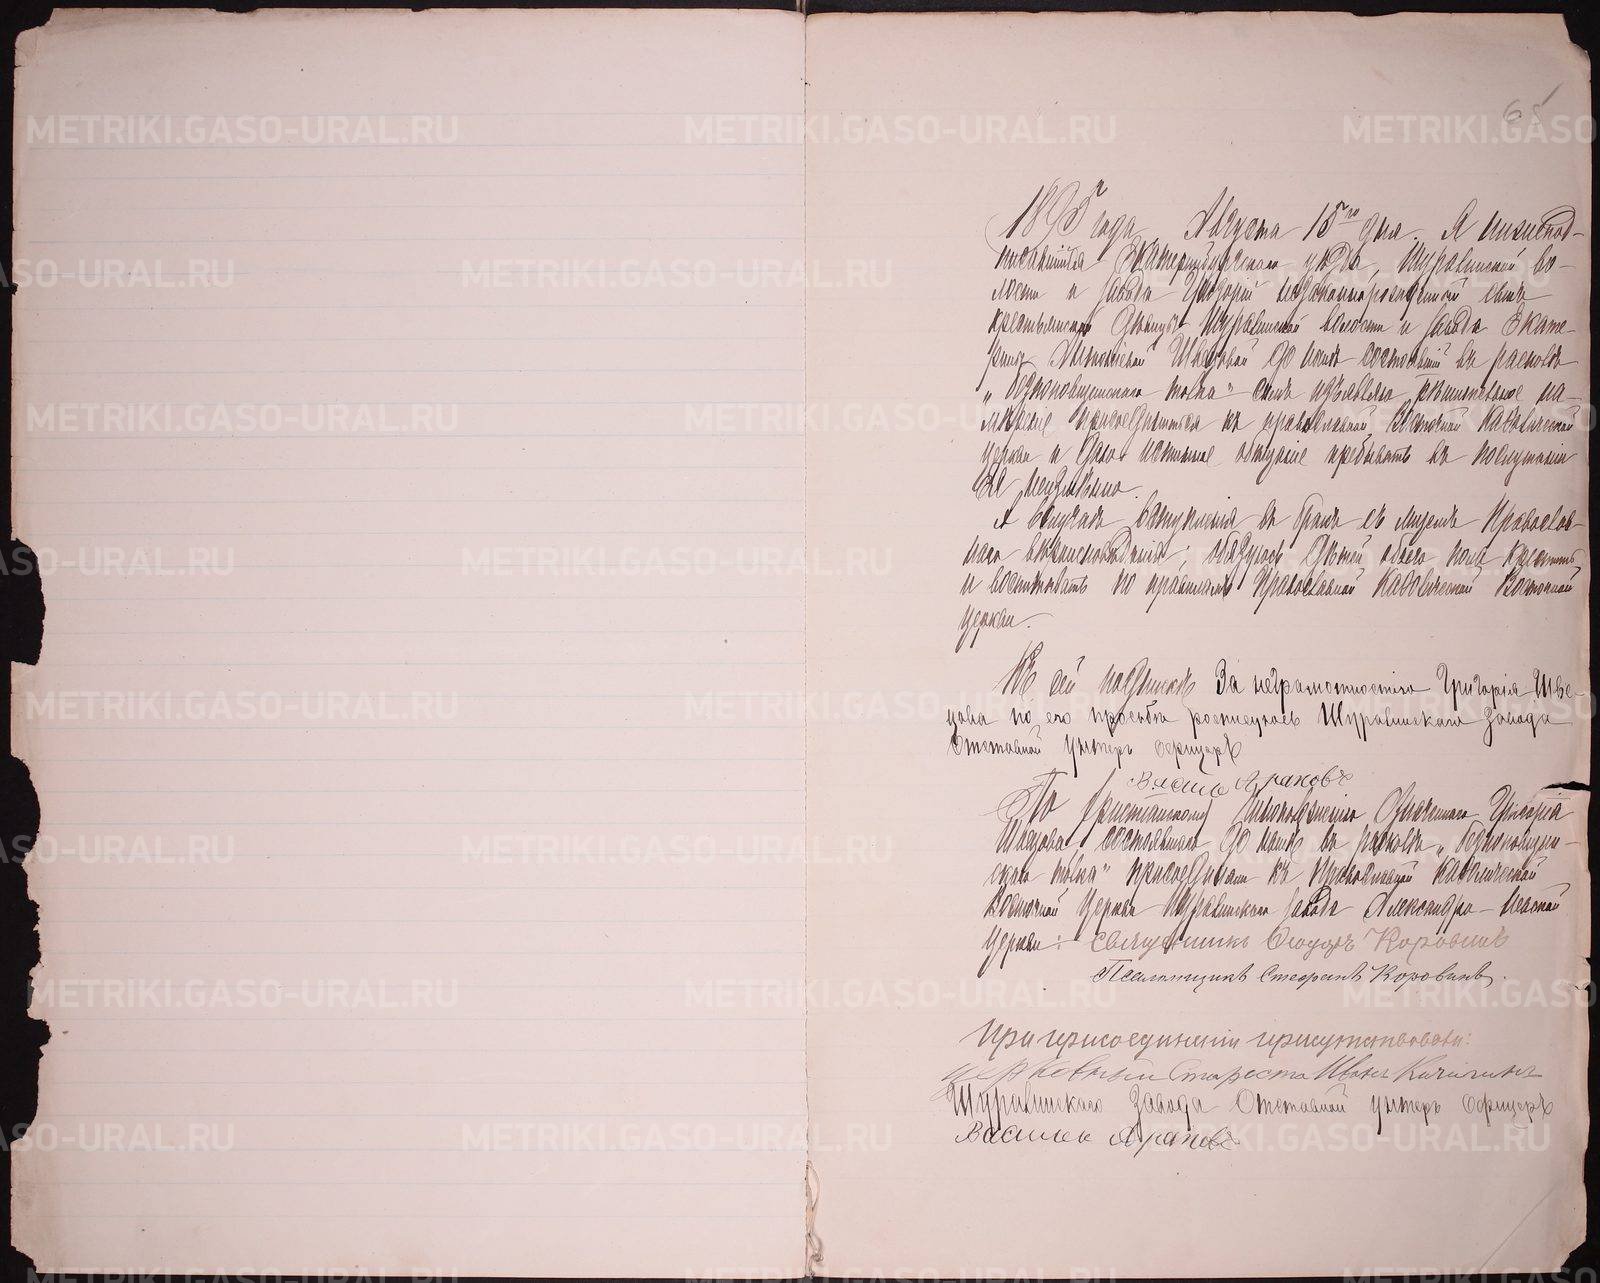 65
1895 года Августа 15го дня. Я нижепод-
писавшийся Екатеринбургского уѣзда, Шуралинской во-
лости и завода Григорій незаконнорожденный сынъ
крестьянской дѣвицы Шуралинской волости и завода Екате-
рины Швецовой до нынѣ состоявшій въ расколѣ
толка" симъ изъявляю рѣшительное на-
мѣреніе присоединиться къ православной Восточной Каѳолической
церкви и даю истинное обѣщаніе пребывать въ послушаніи
Ея неизмѣнно.
А въ случаѣ вступленія въ бракъ съ лицемъ Православ-
наго вѣроисповѣданія, обязуюсь дѣтей обоего пола крестить
и воспитывать по правиламъ Православной Каѳолической Восточной
церкви.
Къ сей подпискѣ За неграмотностію Григорія Шве-
цова по его прозьбѣ росписуюсь Шуралинскаго Завода
Отставной унтеръ офицеръ
Василь Араповъ
По Означенного Григорія
Швецова, состоявшаго до нынѣ въ расколѣ
толка" присоединили къ Православной Каѳолической
Восточной Церкви Шуралинскаго завода Александро-Невской
Церкви: священникъ Ѳеодоръ Коровинъ
Псаломщикъ Стефанъ Коровинъ.
При присоединеніи присутствовали:
церковный Староста Иванъ Кичигинъ
Шуралинскаго Завода Отставной унтеръ офицеръ
Василеи Араповъ
METRIKI.GASO-URAL.RU